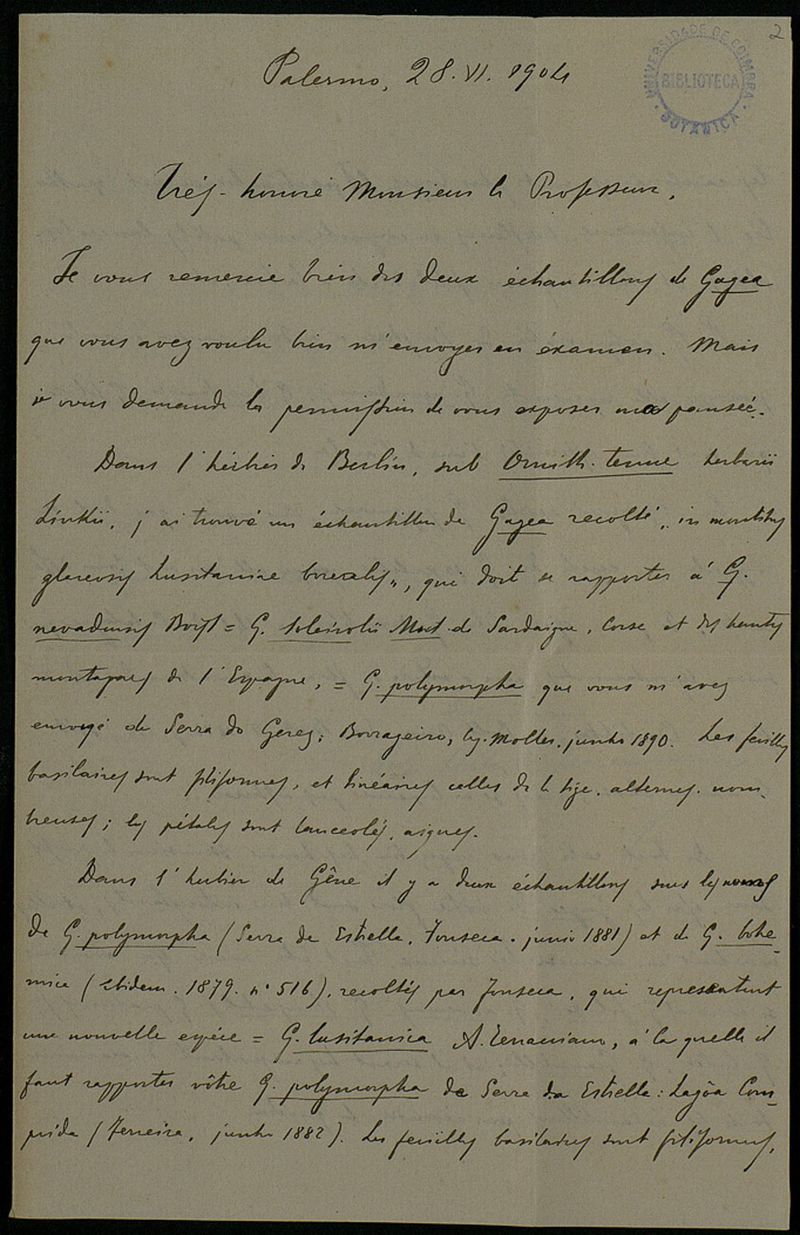 2
UNIVERSIDADE DE COIMBRA
BIBLIOTECA
BOTANICA
Palermo, 28. VI. 1904
Trés-honoré Monsieur le Professeur,
Je vous remercie bien des deux échantillons de Gagea
que vous avez voulu bien m'envoyer en éxamen. Mais
je vous demande la permission de vous exposer ma pensée.
Dans l'herbier de Berlin, sub Ornith. tenue herbarii
Linkii, j'ai trouvé un échantillon de Gagea recolté „in montibus
glareosis Lusitaniae borealis„, qui doit se rapporter á G.
nevadensis Boiss = G. Soleirolii Mut. de Sardaigne, Corse et des hautes
montagnes de l'Espagne, = G. polymorpha que vous m'avez
envoyé de Serra do Gerez: Borrageiro, leg. Moller. junho 1890. Les feuilles
basilaires sont filiformes, et linéaires celles de la tige, alternes, nom-
breuses; les pétales sont lanceolés, aigues.
Dans l'herbier de Gêne il y a deux échantillons sous les noms
de G. polymorpha (Serra da Estrella, Fonseca. junio 1881) et de G. bohe-
mica (Ibidem. 1879. n° 516), recoltés par Fonseca, qui representent
une nouvelle espéce = G. lusitanica A. Terracciano, á la quelle il
faut rapporter vôtre G. polymorpha de Serra da Estrella: Lagôa Com-
prida (Ferreira, junho 1882). Les feuilles basilaires sont filiformes,